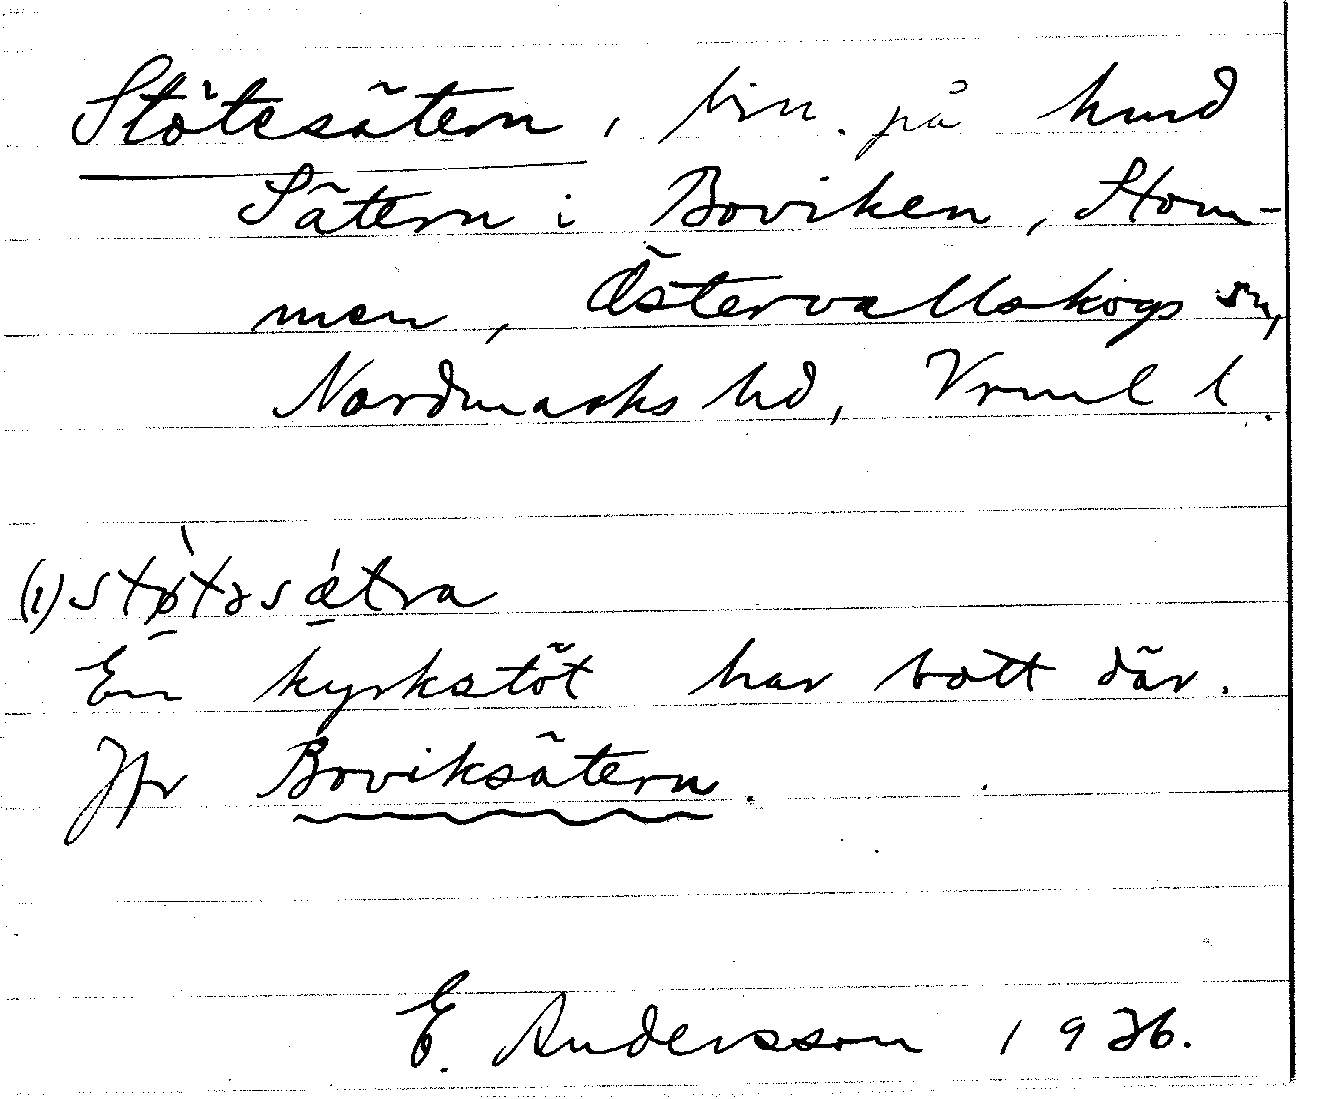 Stötesätern, bin. på hmd
Sätern i Boviken, Stom-
men, Östervallskogs sn,
Nordmarks hd, Vrml l.
(i) støtəsætra
En kyrkstöt har bott där.
Jfr Boviksätern.
E. Andersson 1936.